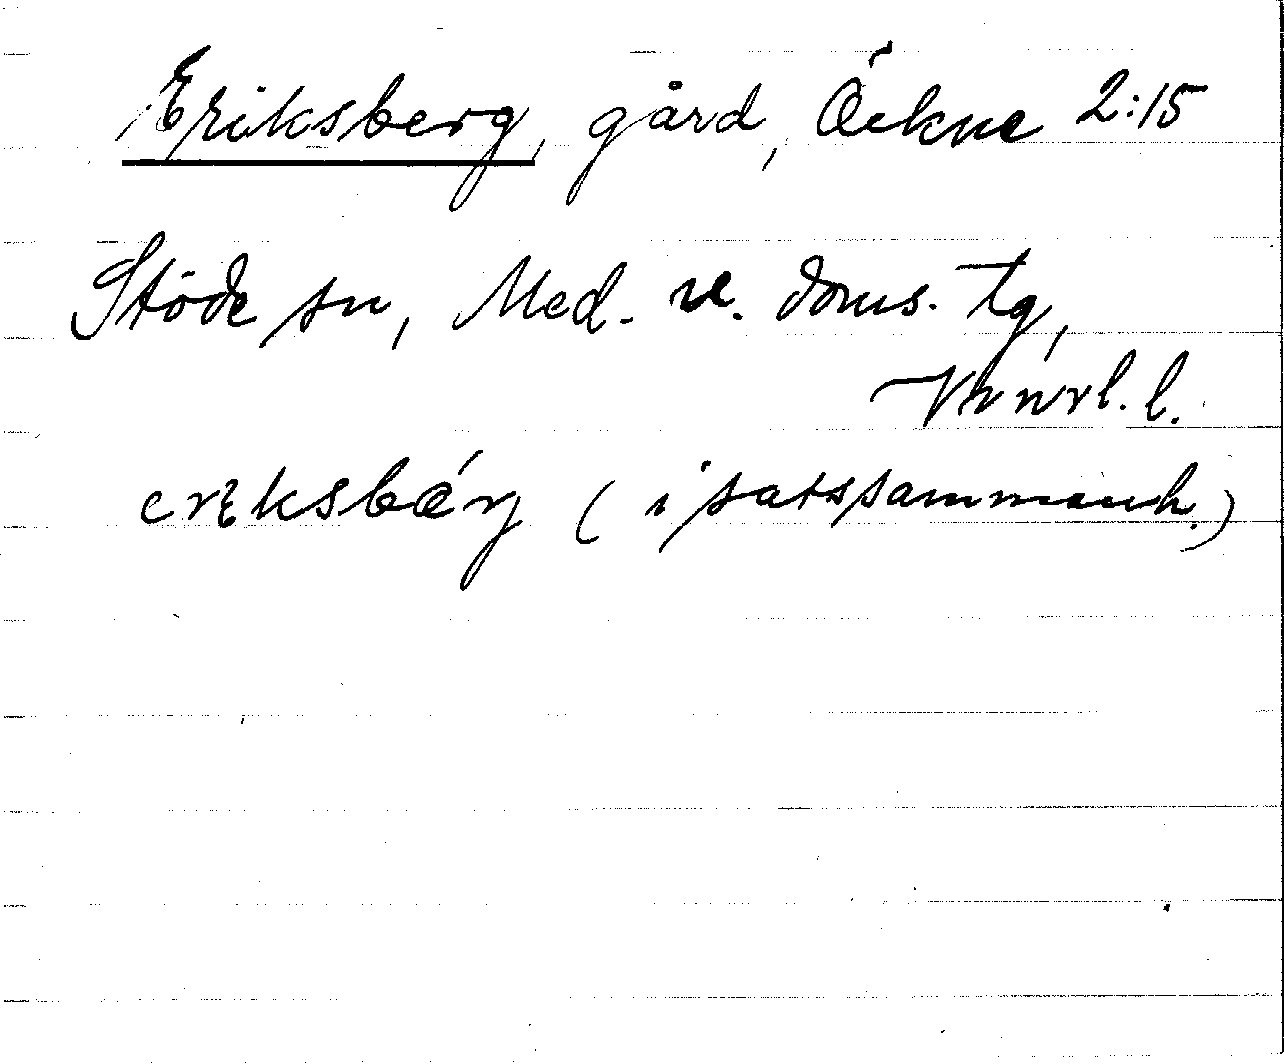 Eriksberg, gård, Öckne 2:15
Stöde sn, Med. v. doms. tg,
Vnorl. l.
erɪksbǽrj (i satssammanh.)